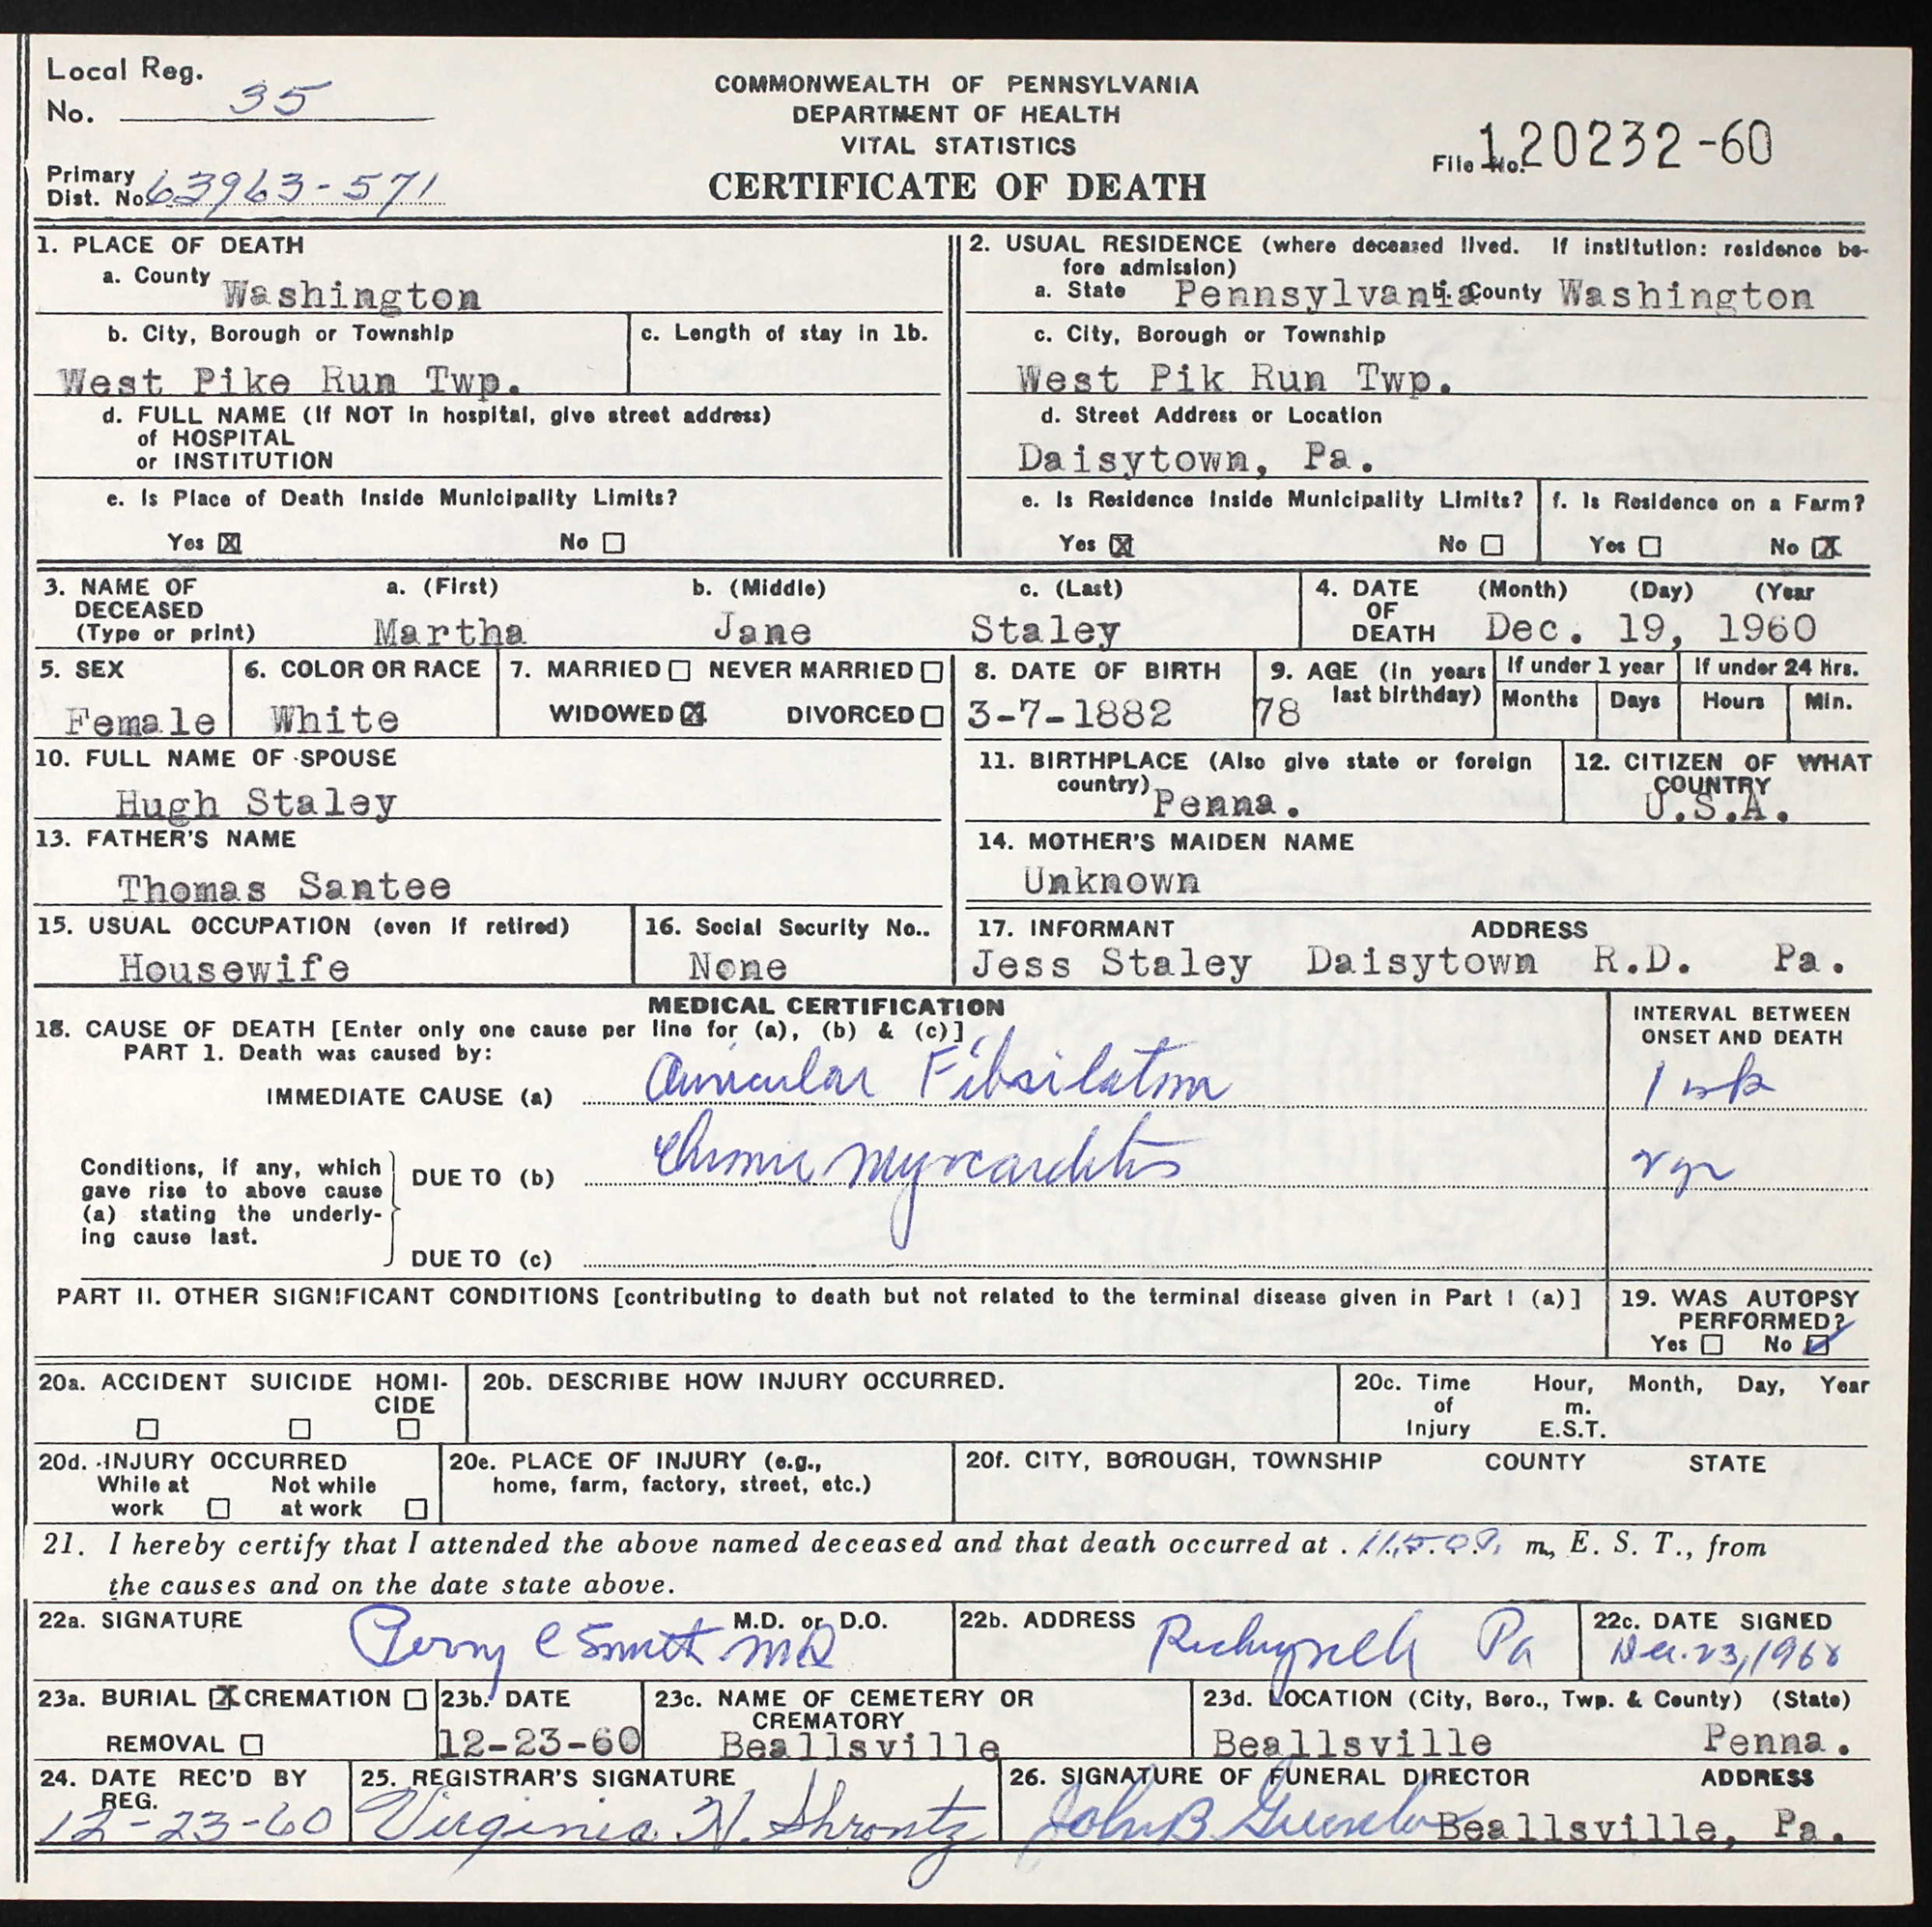 Local Reg.
No. 35
COMMONWEALTH OF PENNSYLVANIA
DEPARTMENT OF HEALTH
VITAL STATISTICS
CERTIFICATE OF DEATH
File No. 120232-60
Primary
Dist. No. 63963-571
1. PLACE OF DEATH
a. County Washington
b. City, Borough or Township
West Pike Run Twp.
c. Length of stay in 1b.
d. FULL NAME (If NOT in hospital, give street address)
of HOSPITAL
or INSTITUTION
e. Is Place of Death Inside Municipality Limits?
Yes ☒ No ☐
2. USUAL RESIDENCE (where deceased lived. If institution: residence be-
fore admission)
a. State Pennsylvania b. County Washington
c. City, Borough or Township
West Pik Run Twp.
d. Street Address or Location
Daisytown, Pa.
e. Is Residence Inside Municipality Limits?
Yes ☒ No ☐
f. Is Residence on a Farm?
Yes ☐ No ☒
3. NAME OF DECEASED (Type or print)
a. (First) b. (Middle) c. (Last)
Martha Jane Staley
4. DATE OF DEATH (Month) (Day) (Year
Dec. 19, 1960
5. SEX
Female
6. COLOR OR RACE
White
7. MARRIED ☐ NEVER MARRIED ☐
WIDOWED ☒ DIVORCED ☐
8. DATE OF BIRTH
3-7-1882
9. AGE (in years
last birthday)
78
If under 1 year
Months Days
If under 24 hrs.
Hours Min.
10. FULL NAME OF SPOUSE
Hugh Staley
11. BIRTHPLACE (Also give state or foreign
country) Penna.
12. CITIZEN OF WHAT
COUNTRY
U.S.A.
13. FATHER'S NAME
Thomas Santee
14. MOTHER'S MAIDEN NAME
Unknown
15. USUAL OCCUPATION (even if retired)
Housewife
16. Social Security No..
None
17. INFORMANT ADDRESS
Jess Staley Daisytown R.D. Pa.
MEDICAL CERTIFICATION
18. CAUSE OF DEATH [Enter only one cause per line for (a), (b) & (c)]
PART 1. Death was caused by:
INTERVAL BETWEEN
ONSET AND DEATH
IMMEDIATE CAUSE (a) Auricular Fibrilation 1 wk
Conditions, if any, which
gave rise to above cause
(a) stating the underly-
ing cause last.
DUE TO (b) Chronic Myocarditis yr
DUE TO (c)
PART II. OTHER SIGNIFICANT CONDITIONS [contributing to death but not related to the terminal disease given in Part I (a)]
19. WAS AUTOPSY
PERFORMED?
Yes ☐ No ☑
20a. ACCIDENT SUICIDE HOMI-
CIDE
☐ ☐ ☐
20b. DESCRIBE HOW INJURY OCCURRED.
20c. Time of Injury Hour, Month, Day, Year
m.
E.S.T.
20d. INJURY OCCURRED
While at work ☐ Not while at work ☐
20e. PLACE OF INJURY (e.g.,
home, farm, factory, street, etc.)
20f. CITY, BOROUGH, TOWNSHIP COUNTY STATE
21. I hereby certify that I attended the above named deceased and that death occurred at 11.50 P. m., E. S. T., from
the causes and on the date state above.
22a. SIGNATURE M.D. or D.O.
Perry C Smith MD
22b. ADDRESS
Pa
22c. DATE SIGNED
Dec. 23, 1960
23a. BURIAL ☒ CREMATION ☐
REMOVAL ☐
23b. DATE
12-23-60
23c. NAME OF CEMETERY OR
CREMATORY
Beallsville
23d. LOCATION (City, Boro., Twp. & County) (State)
Beallsville Penna.
24. DATE REC'D BY
REG.
12-23-60
25. REGISTRAR'S SIGNATURE
Virginia N. Shrontz
26. SIGNATURE OF FUNERAL DIRECTOR ADDRESS
John B Beallsville, Pa.